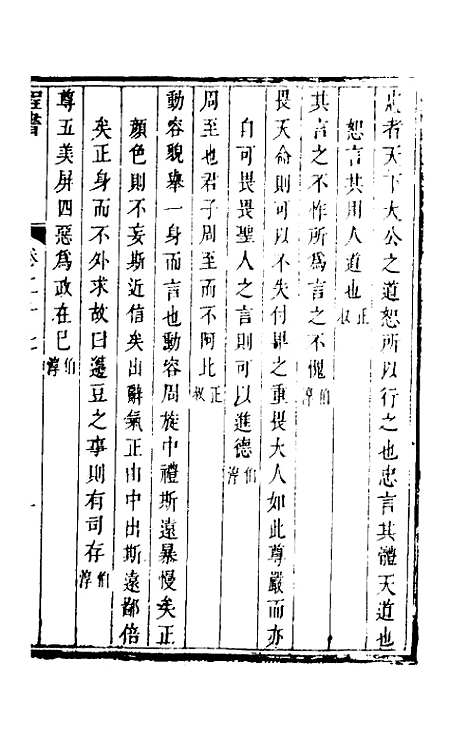 忠者天下大公之道恕所以行之也忠言其體天道也
恕言其用人道也正叔
其言之不怍所為言之不愧伯淳
畏天命則可以不失付畀之重畏大人如此尊嚴而亦
自可畏畏聖人之言則可以進德伯淳
周至也君子周至而不阿比正叔
動容貌舉一身而言也動容周旋中禮斯遠暴慢矣正
顏色則不妄斯近信矣出辭氣正由中出斯遠鄙倍
矣正身而不外求故曰籩豆之事則有司存伯淳
尊五美屏四惡為政在己伯淳
程書 卷二十七